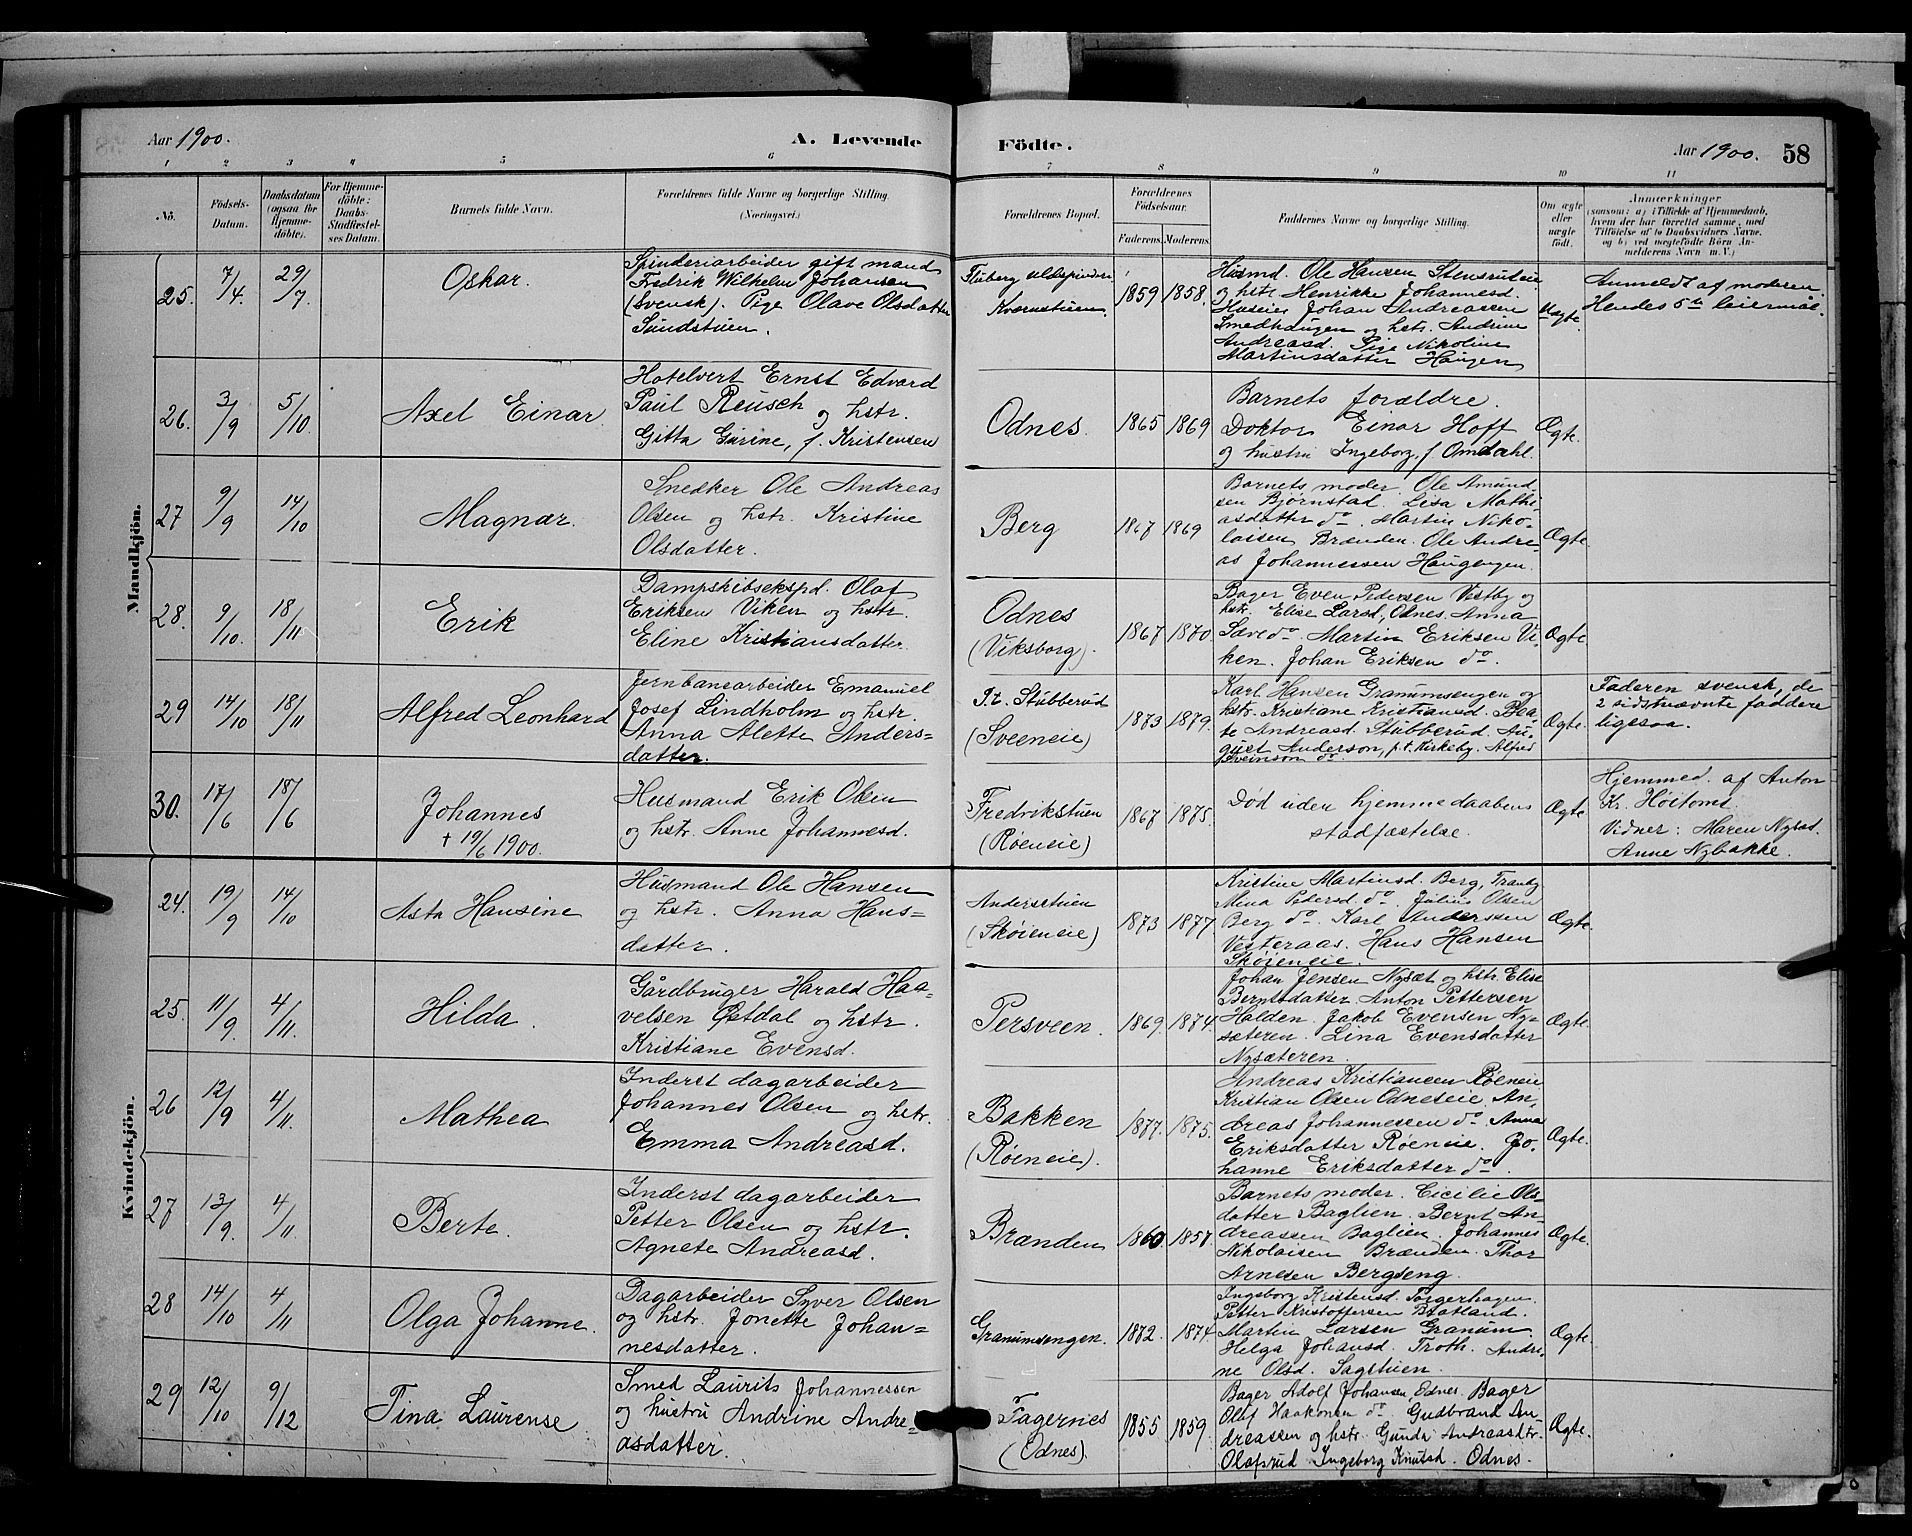 Aar 1900.
A. Levende
Födte.
Aar 1900.
58
1 2 3 4 5 6 7 8 9 10 11
No.
Födsels-
Datum.
Daabsdatum
(ogsaa for
Hjemme-
döbte).
For Hjemme-
döbte:
Daabs-
Stadfæstel-
ses Datum.
Barnets fulde Navn.
Forældrenes fulde Navne og borgerlige Stilling.
(Næringsvei.)
Forældrenes Bopæl.
Forældrenes
Födselsaar.
Faderens. Moderens.
Faddernes Navne og borgerlige Stilling.
Om ægte
eller
uægte
födt.
Anmærkninger
(saasom: a) i Tilfælde af Hjemmedaab,
hvem der har forrettet samme, med
Tilföielse af to Daabsvidners Navne,
og b) ved uægtefödte Börn An-
melderens Navn m. V.)
Mandkjön.
25.
7/4.
29/7.
Oskar.
Spinderiarbeider gift mand
Fredrik Wilhelm Johansen
(svensk). Pige Olave Olsdatter
Sundstuen.
Fluberg uldspinderi
Kværnstuen.
1859
1858.
Husmd. Ole Hansen Stensrudeie
og hstr. Henrikke Johannesd.
Huseier Johan Andreassen
Smedhaugen og hstr. Andrine
Andreasd. Pige Nikoline
Martinsdatter Haugen
Uægte.
Anmeldt af moderen.
Hendes 5te leiermål.
26.
3/9
5/10.
Axel Einar.
Hotelvert Ernst Edvard
Paul Reusch og hstr.
Gitta Gurine, f. Kristensen
Odnes.
1865
1869
Barnets forældre.
Doktor Einar Hoff
og hustru Ingeborg, f. Omdahl.
Ægte.
27
9/9
14/10
Magnar.
Snedker Ole Andreas
Olsen og hstr. Kristine
Olsdatter.
Berg
1867
1869
Barnets moder. Ole Amund-
sen Bjørnstad. Lisa Mathi-
asdatter do. Martin Niko-
laisen Brænden. Ole Andre-
as Johannessen Haugengen.
Ægte.
28.
9/10.
18/11
Erik
Dampskibsekspd. Olaf
Eriksen Viken og hstr.
Eline Kristiansdatter.
Odnes
(Viksborg).
1867
1870.
Bager Even Pedersen Vestby og
hstr. Elise Larsd., Odnes. Anna
Save do. Martin Eriksen Vi-
ken. Johan Eriksen do.
Ægte.
29
14/10
18/11
Alfred Leonhard
Jernbanearbeider Emanuel
Josef Lindholm og hstr.
Anna Alette Anders-
datter.
P.t. Stubberud
(Sveeneie)
1873
1879.
Karl Hansen Granumsengen og
hstr. Kristiane Kristiansd. Bea-
te Andreasd. Stubberud. Au-
gust Anderson, p.t. Kirkeby. Alfred
Sveinson do.
Ægte.
Faderen svensk, de
2 sidstnævnte faddere
ligesaa.
30.
17/6
18/6
Johannes
+ 19/6 1900.
Husmand Erik Olsen
og hstr. Anne Johannesd.
Fredrikstuen
(Røeneie)
1867
1875.
Død uden hjemmedaabens
stadfæstelse.
Ægte
Hjemmed. af Anton
Kr. Høitomt.
Vidner: Maren Nysæt.
Anne Nybakke.
Kvindekjön.
24.
19/9
14/10
Asta Hansine
Husmand Ole Hansen
og hstr. Anna Hans-
datter.
Anderstuen
(Skøieneie)
1873
1877
Kristine Martinsd. Berg, Tranby
Mina Pedersd. do. Julius Olsen
Berg do. Karl Anderssen
Vesteraas. Hans Hansen
Skøieneie.
Ægte.
25.
11/9.
4/11.
Hilda.
Gårdbruger Harald Haa-
velsen Østdal og hstr.
Kristiane Evensd.
Persveen.
1869.
1874.
Johan Jensen Nysæt og hstr. Elise
Berntsdatter. Anton Pettersen
Halden. Jakob Evensen Ny-
sæteren. Lina Evensdatter
Nysæteren.
Ægte.
26
12/9
4/11.
Mathea
Inderst dagarbeider
Johannes Olsen og hstr.
Emma Andreasd.
Bakken
(Røeneie).
1877.
1875.
Andreas Kristiansen Røeneie
Kristian Olsen Odneseie An-
dreas Johannessen do. Anna
Eriksdatter Røeneie. Jo-
hanne Eriksdatter do.
Ægte.
27
13/9.
4/11.
Berte.
Inderst dagarbeider
Petter Olsen og hstr.
Agnete Andreasd.
Brænden
1860
1857
Barnets moder. Cicilie Ols-
datter Baglien. Bernt An-
dreassen Baglien. Johannes
Nikolaisen Brænden. Thor
Arnesen Bergseng.
Ægte.
28
14/10
4/11
Olga Johanne.
Dagarbeider Syver Olsen
og hstr. Jonette Johan-
nesdatter.
Granumsengen.
1872.
1874
Ingeborg Kristensd. Torgerhagen.
Petter Kristoffersen Bratland.
Martin Larsen Granum.
Helga Johansd. Troth. Andri-
ne Olsd. Sagstuen.
Ægte.
29
12/10
9/12
Tina Laurense
Smed Laurits Johannessen
og hustru Andrine Andre-
asdatter.
Fagernes
(Odnes).
1855
1859.
Bager Adolf Johansen, Odnes. Bager
Olaf Haakonsen do. Gudbrand An-
dreassen og hstr. Gunda Andreasdtr.
Olafsrud. Ingeborg Knutsd. Odnes.
Ægte.